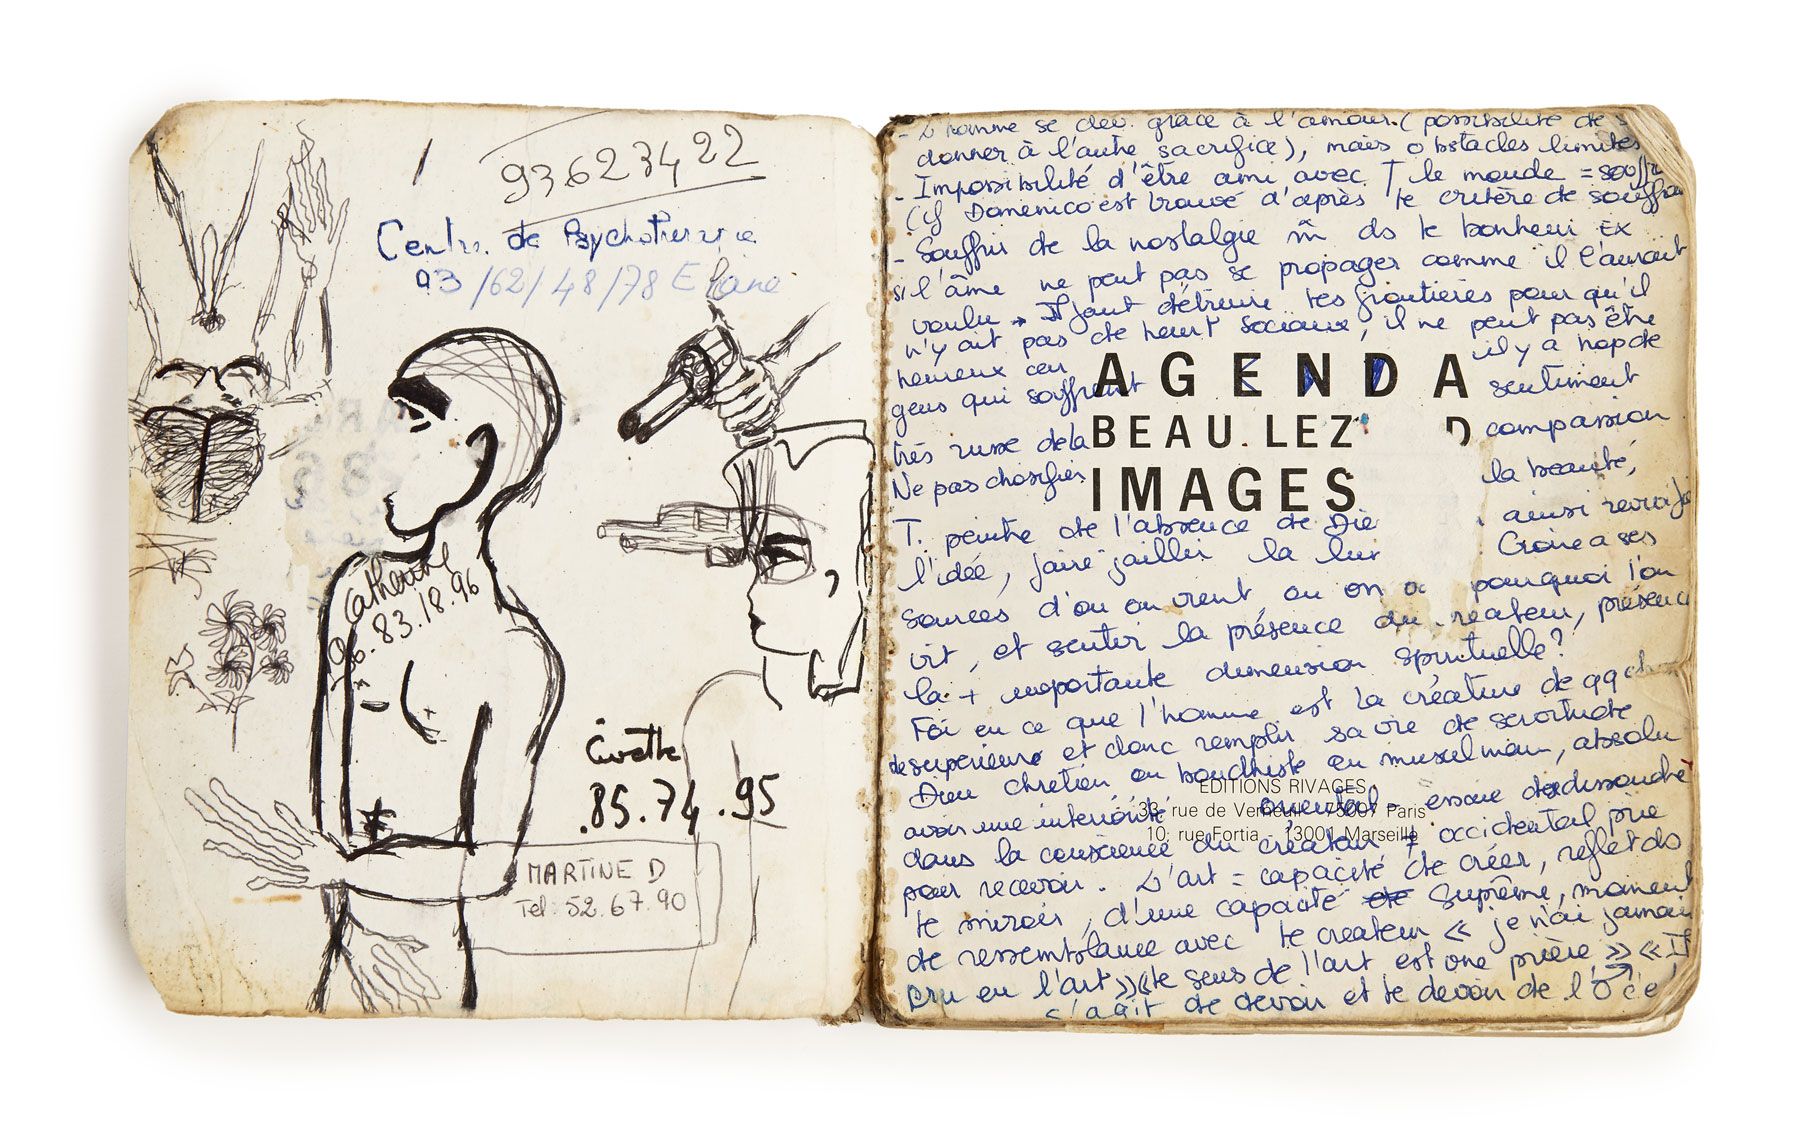 93623422
Centre de Psychothérapie
93/62/48/78 Eliane
Catherine
.83.18.96
.85.74.95
MARTINE D
Tel: 52.67.90
- L'homme se dév. grâce à l'amour. (possibilité de
donner à l'autre sacrifice), mais obstacles limites
- Impossibilité d'être ami avec T le monde =
(cf Domenico est trouvé d'après le critère de
- Souffrir de la nostalgie m̃ ds le bonheur EX
si l'âme ne peut pas se propager comme il l'aurait
voulu → Il faut détruire les frontières pour qu'il
n'y ait pas de heurt sociaux, il ne peut pas être
heureux car il y a trop de
gens qui souffrent sentiment
AGENDA
très russe de la compassion
BEAU LEZ D
Ne pas la beauté,
IMAGES
ainsi
T. peintre de l'absence de Die Croire a ses
l'idée, faire jaillir la lu
sources d'ou on vient ou on pourquoi l'on
vit, et sentir la présence du créateur, présence
la + importante dimension spirituelle?
Foi en ce que l'homme est la créature de qq
de supérieure et donc remplir sa vie de servitude
Dieu chrétien ou bouddhiste ou musulman, absolu
EDITIONS RIVAGES
avoir une interiorité oriental essaie de dissoudre
33, rue de Verneuil - 75007 Paris
10, rue Fortia - 13001 Marseille
dans la conscience du créateur ≠ occidental prie
pour recevoir. L'art = capacité de créer, reflet ds
le miroir, d'une capacité de Suprême, moment
de ressemblance avec le createur « je n'ai jamais
cru en l'art » « le sens de l'art est une prière » « Il
s'agit de devoir et le devoir de l'